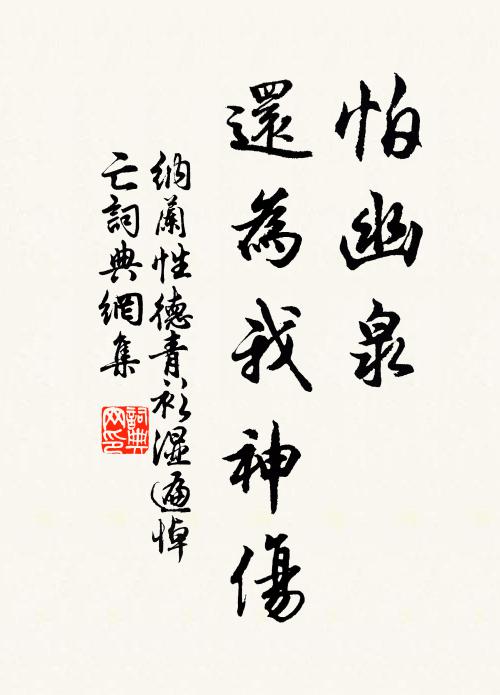 怕幽泉
還為我神傷
納蘭性德青衫濕遍悼
亡詞典網集
詞典網印